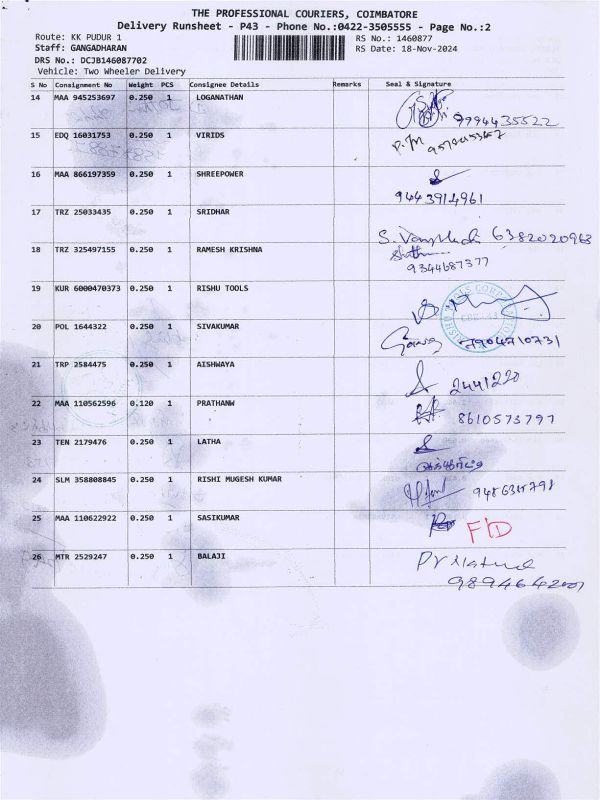 THE PROFESSIONAL COURIERS, COIMBATORE
Delivery Runsheet - P43 - Phone No.:0422-3505555 - Page No.:2
Route: KK PUDUR 1
RS No.: 1460877
Staff: GANGADHARAN
RS Date: 18-Nov-2024
DRS No.: DCJB146087702
Vehicle: Two Wheeler Delivery
S No Consignment No Weight PCS Consignee Details Remarks Seal & Signature
14 MAA 945253697 0.250 1 LOGANATHAN
9994435522
15 EDQ 16031753 0.250 1 VIRIDS
16 MAA 866197359 0.250 1 SHREEPOWER
9443914961
17 TRZ 25033435 0.250 1 SRIDHAR
6382020963
18 TRZ 325497155 0.250 1 RAMESH KRISHNA
9344687377
19 KUR 6000470373 0.250 1 RISHU TOOLS
20 POL 1644322 0.250 1 SIVAKUMAR
7904710731
21 TRP 2584475 0.250 1 AISHWAYA
2441220
22 MAA 110562596 0.120 1 PRATHANW
8610573797
23 TEN 2179476 0.250 1 LATHA
24 SLM 358808845 0.250 1 RISHI MUGESH KUMAR
25 MAA 110622922 0.250 1 SASIKUMAR F/D
26 MTR 2529247 0.250 1 BALAJI